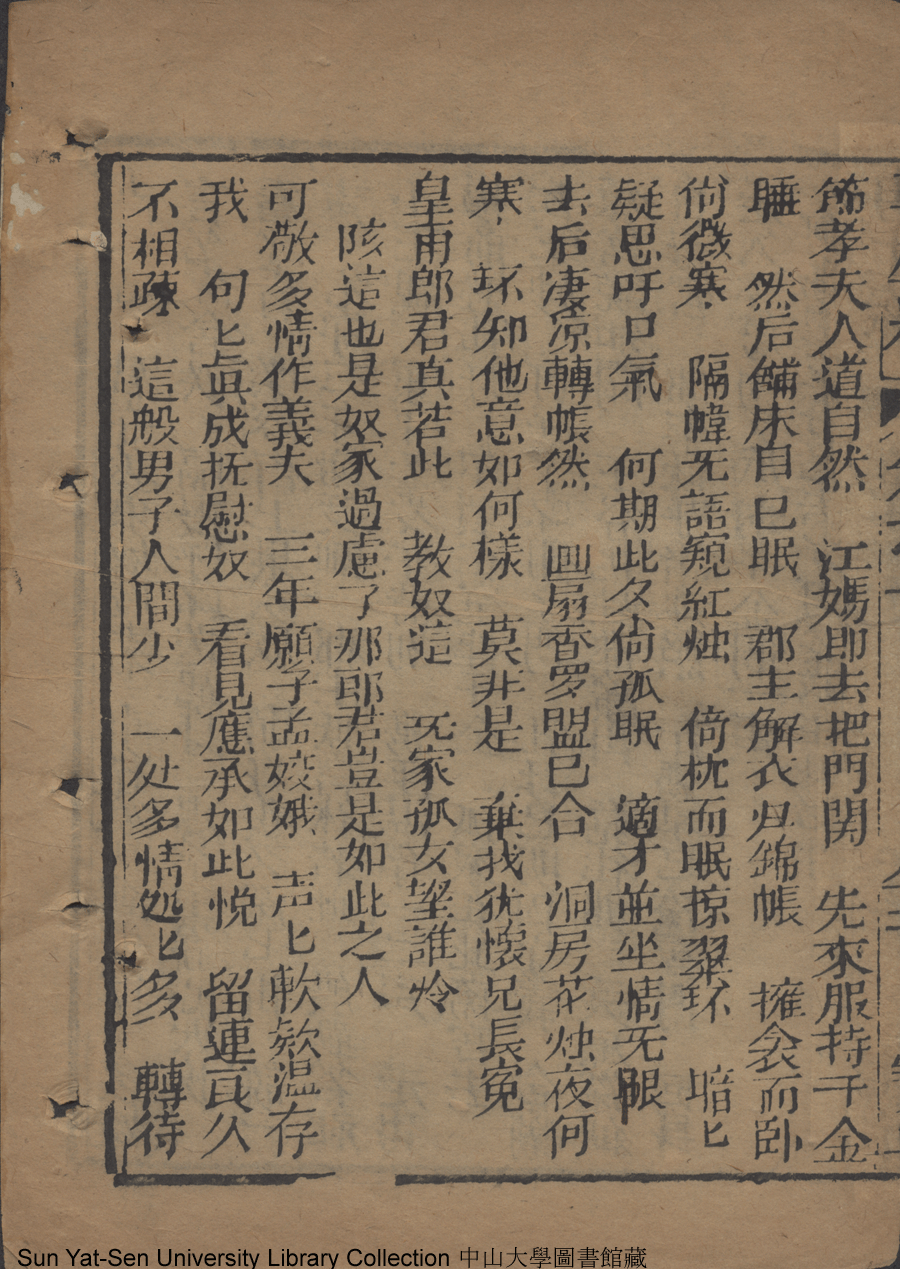 節孝夫人道自然　江媽即去把門関　先來服持千金
睡　然后鋪床自已眠　郡主解衣归錦帳　擁衾而卧
尙微寒　隔幃旡語窺紅烛　倚枕而眠掠翠环　暗匕
疑思吁口氣　何期此久尙孤眠　適才並坐情旡限
去后凄凉轉帳然　画扇香罗盟巳合　洞房花烛夜何
寒　环知他意如何樣　莫非是　棄找犹懷兄長寃
皇甫郎君真若此　教奴這　旡家孤女望誰怜
陔這也是奴家過慮了那郎君豈是如此之人
可敬多情作義夫　三年願子孟姣娥　声匕軟欸温存
我　句匕眞成抚慰奴　看見應承如此悅　留連良久
不相疎　這般男子人間少　一处多情処匕多　轉待
Sun Yat-Sen University Library Collection 中山大學圖書館藏